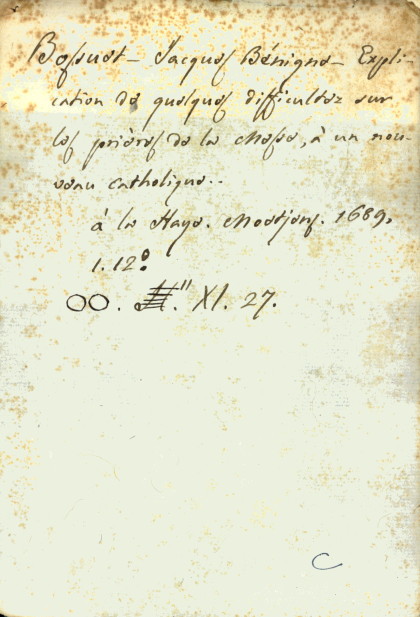 Bossuet - Jacques Bénigne - Expli-
cation de quelques difficultez sur
les prières de la Messe, à un nou-
veau catholique..
à la Haye. Moetjens. 1689.
1. 12º.
OO. II." XI. 27.
C